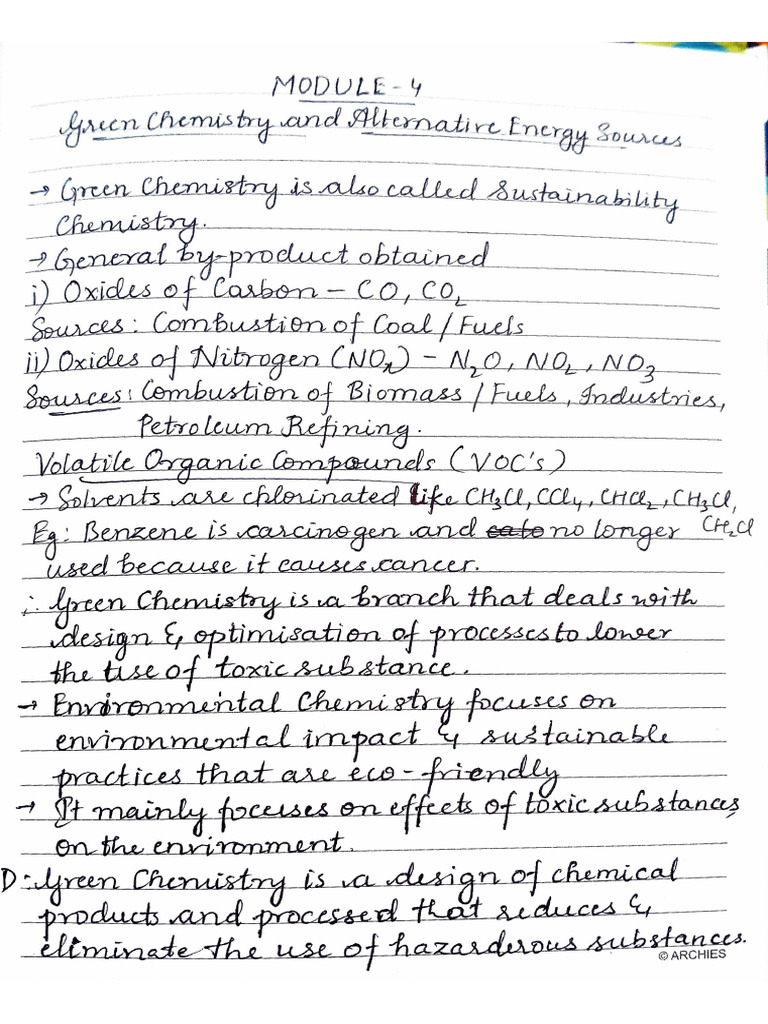 MODULE-4
Green Chemistry and Alternative Energy Sources
→ Green Chemistry is also called Sustainability
Chemistry.
→ General by-product obtained
i) Oxides of Carbon – CO, CO₂
Sources: Combustion of Coal / Fuels
ii) Oxides of Nitrogen (NOx) – N₂O, NO₂, NO₃
Sources: Combustion of Biomass / Fuels, Industries,
Petroleum Refining.
Volatile Organic Compounds (VOC's)
→ Solvents are chlorinated like CH₃Cl, CCl₄, CHCl₂, CH₃Cl,
CH₂Cl
Eg: Benzene is carcinogen and no longer
used because it causes cancer.
∴ Green Chemistry is a branch that deals with
design & optimisation of processes to lower
the use of toxic substance.
→ Environmental Chemistry focuses on
environmental impact & sustainable
practices that are eco-friendly
→ It mainly focuses on effects of toxic substances
on the environment.
D: Green Chemistry is a design of chemical
products and processed that reduces &
eliminate the use of hazarderous substances.
© ARCHIES